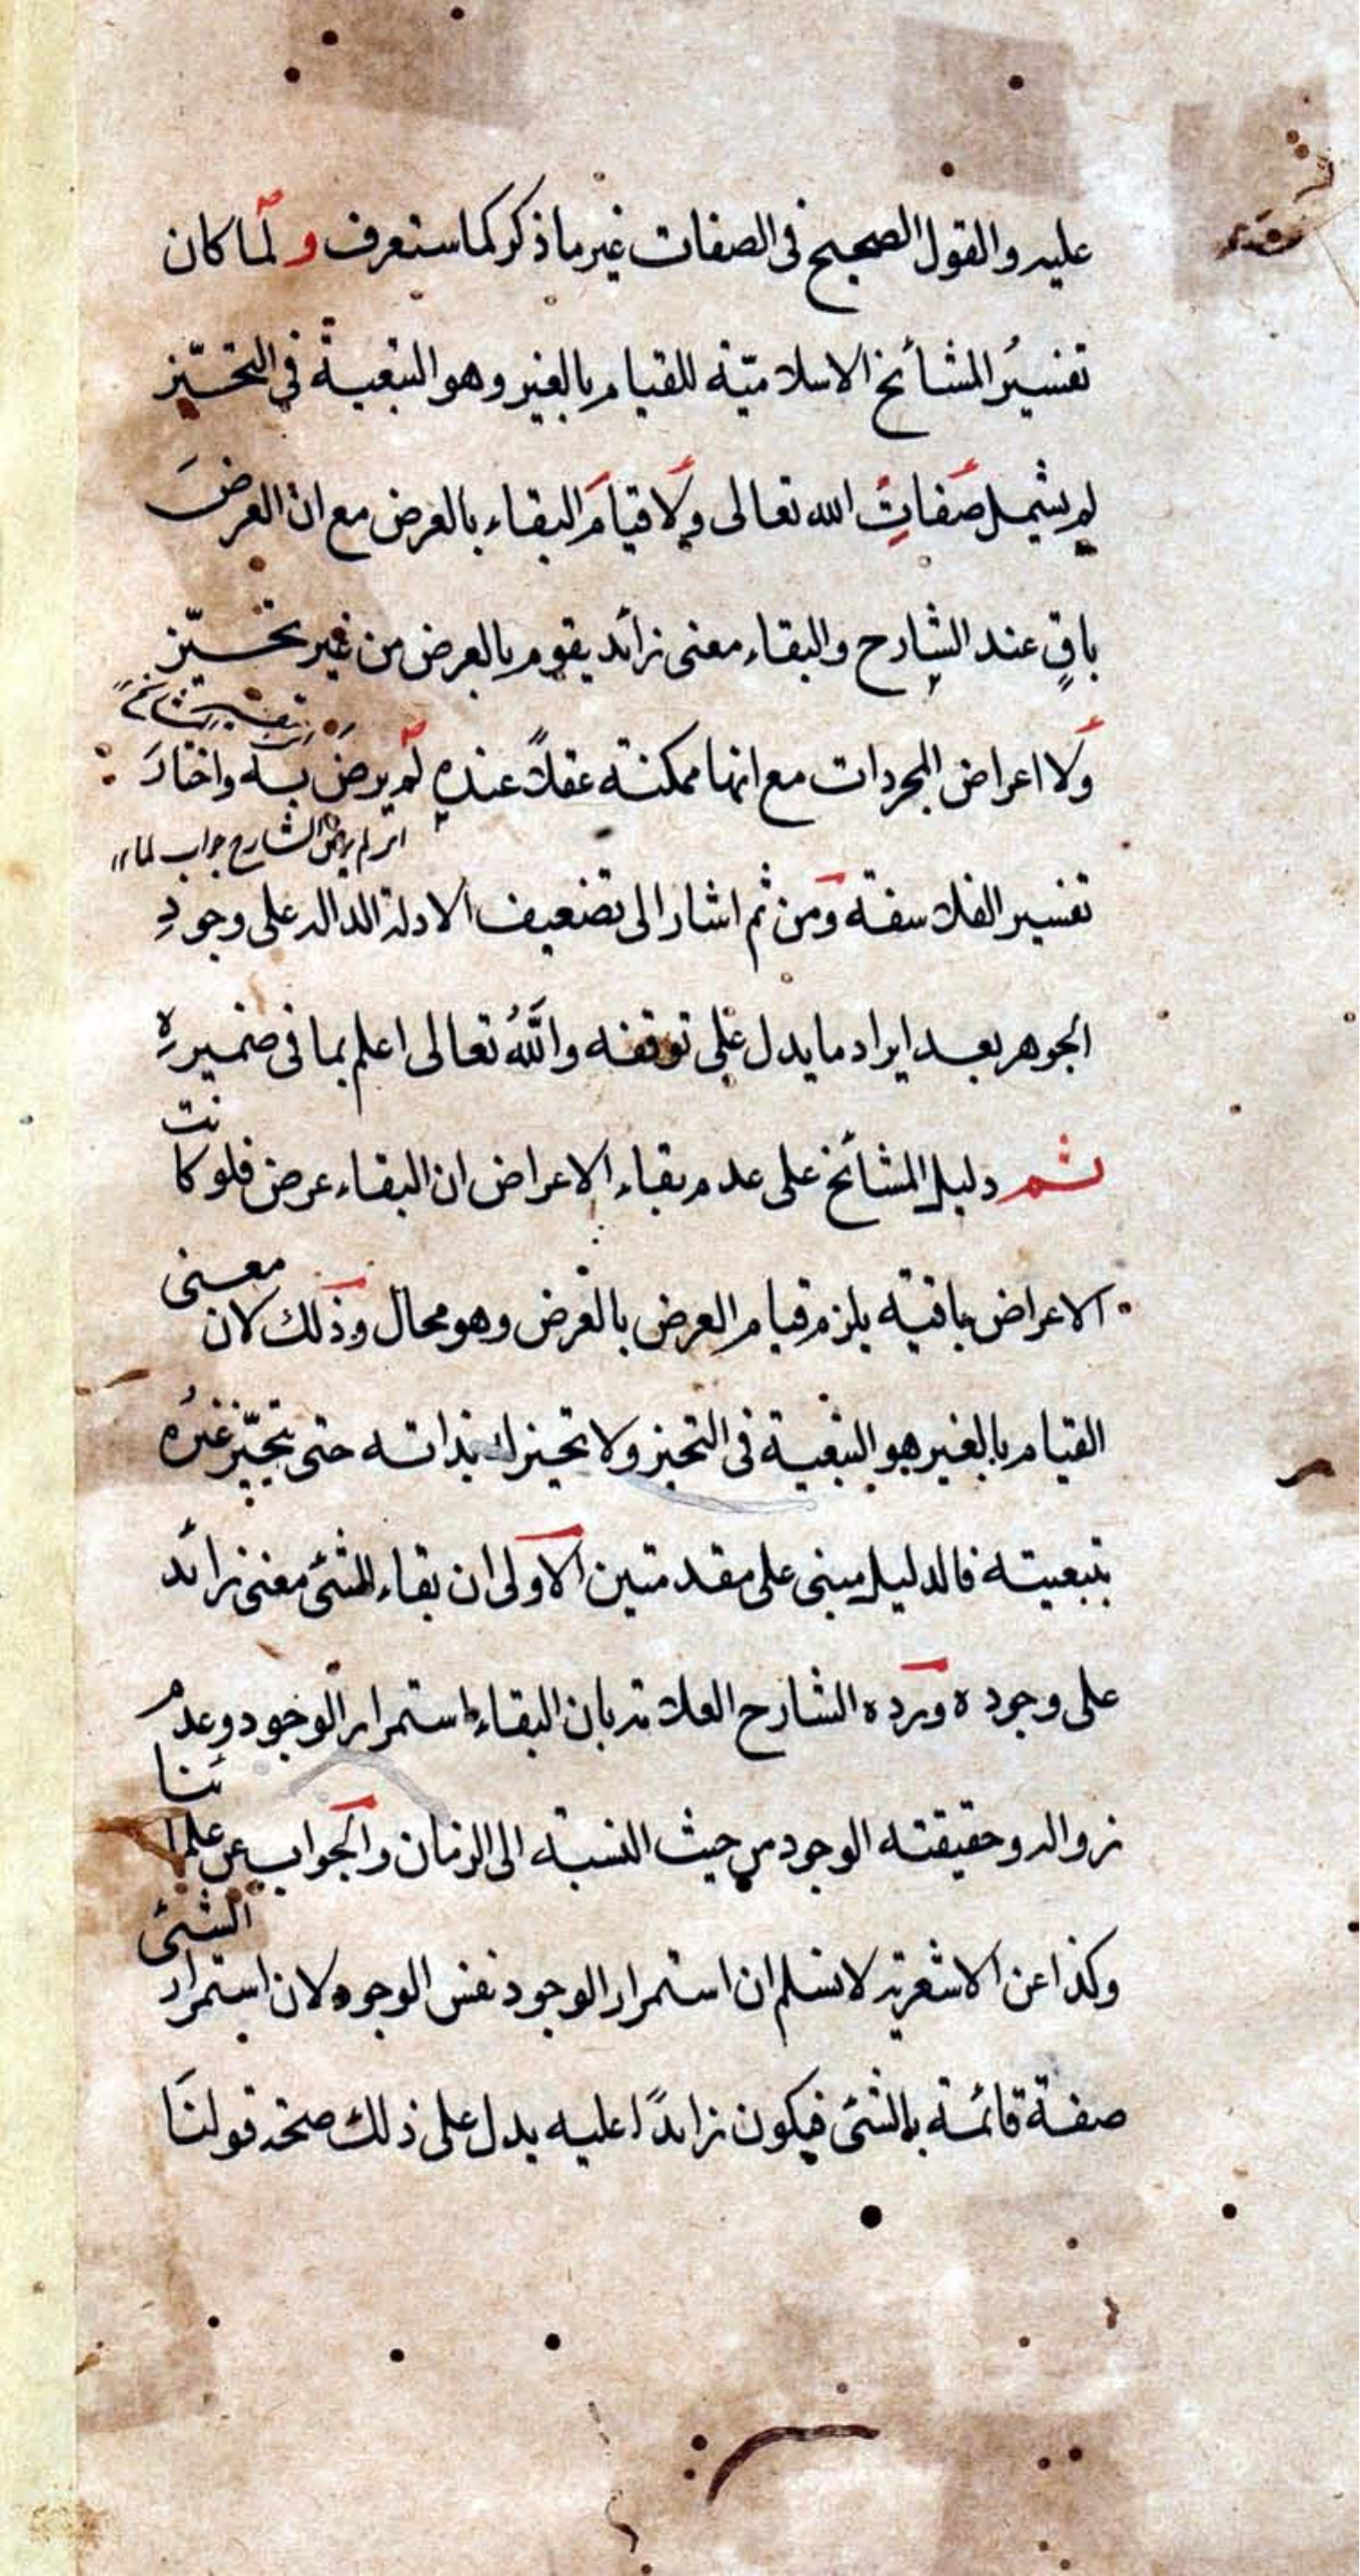 عليه والقول الصحيح فى الصفات غير ما ذكر كما ستعرف ولمّا كان
تفسيرُ المشائخ الاسلاميّة للقيام بالغير وهو التبعيةُ فى التحيّز
لم يشمل صفاتِ الله تعالى ولا قيامَ البقاء بالعرض مع ان العرضَ
باقٍ عند الشارح والبقاء معنى زائد يقوم بالعرض من غير تحيّز
ولا اعراض المجردات مع انها ممكنة عقلاً عنده لم يرضَ به واختارَ
اى لم يرض الشارح جواب لما ١١
تفسير الفلاسفة ومن ثم اشار الى تضعيف الادلة الدالة على وجودِ
الجوهر بعد ايراد ما يدل على توقفه واللهُ تعالى اعلم بما فى ضميرهِ
ثم دليل المشائخ على عدم بقاء الاعراض ان البقاء عرض فلو كانت
الاعراض باقية يلزم قيام العرض بالعرض وهو محال وذلك لان معنى
القيام بالغير هو التبعية فى التحيز ولا تحيز له بذاته حتى يتحيّز غيرُه
بتبعيته فالدليل مبنى على مقدمتين الاولى ان بقاء الشئ معنى زائد
على وجوده ورده الشارح العلامة بان البقاء استمرار الوجود وعدم
زواله وحقيقته الوجود من حيث النسبة الى الزمان والجواب عن علمائنا
وكذا عن الاشعرية لا نسلم ان استمرار الوجود نفس الوجود لان استمرار الشئ
صفة قائمة بالشئ فيكون زائدًا عليه يدل على ذلك صحة قولنا